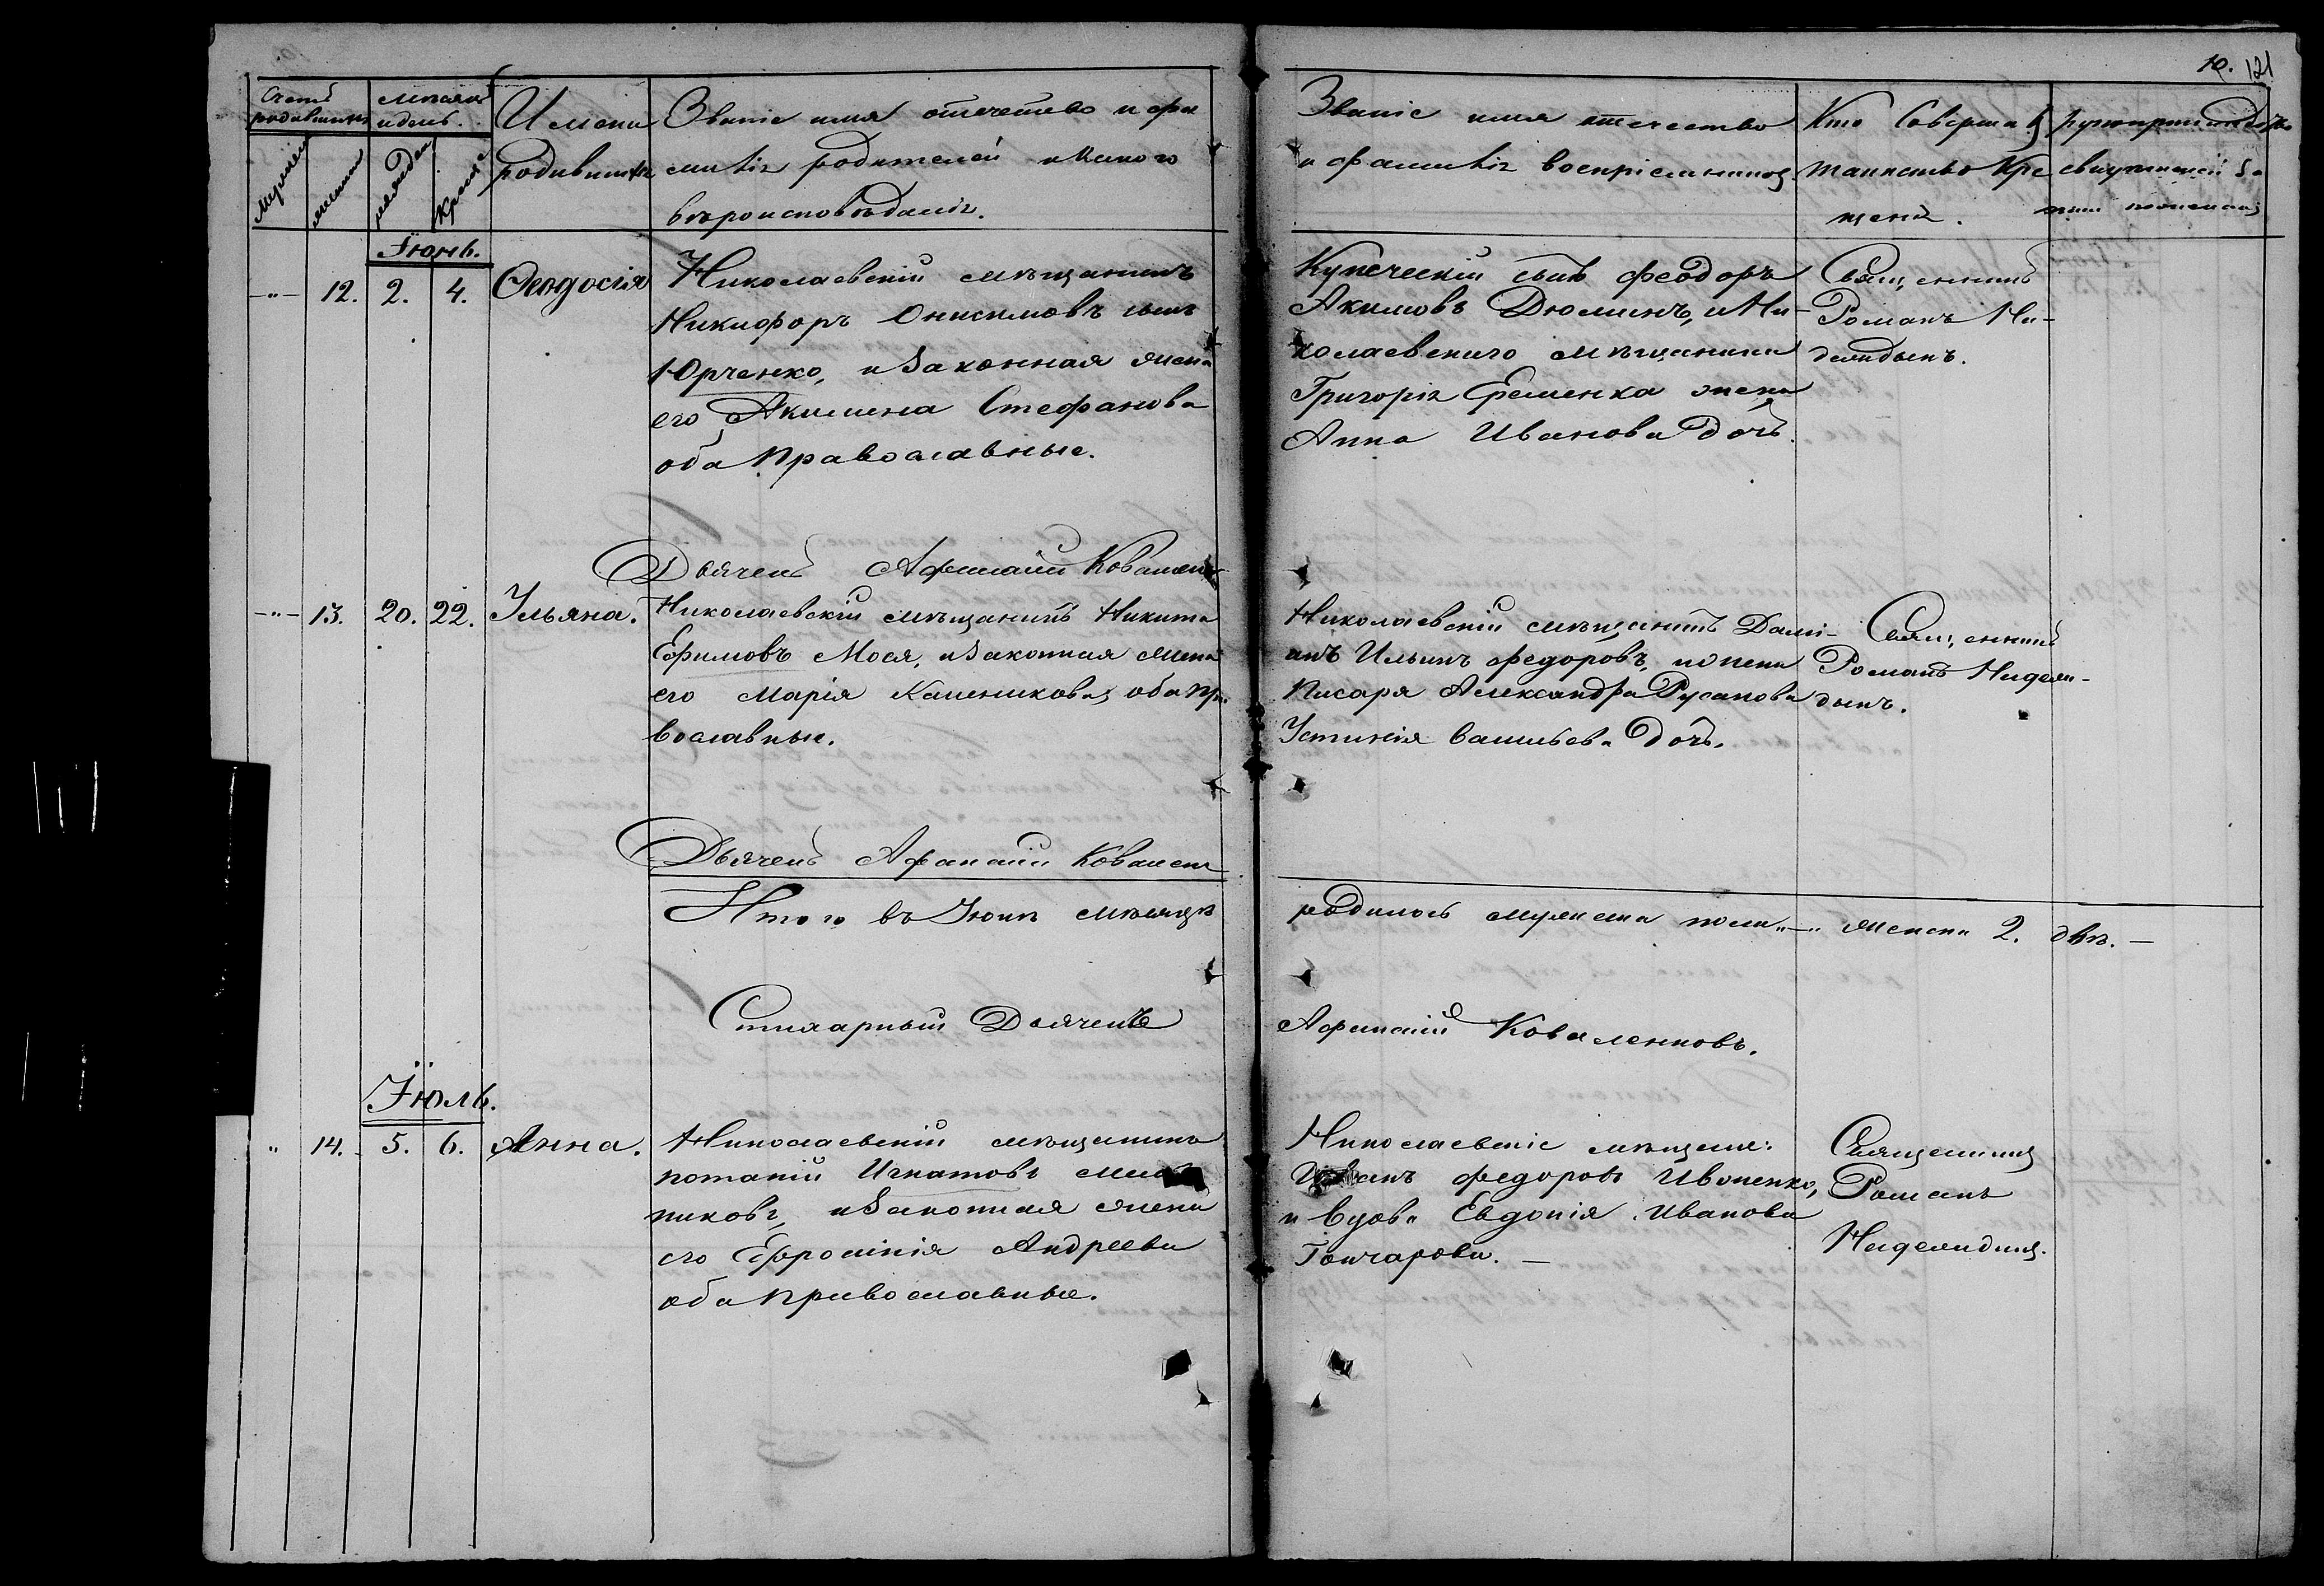 10. 121
Счетъ родившихся
Мѣсяцъ и день.
Имена родившихся
Званіе имя отечество и фа
миліи родителей и какого
вѣроисповѣданія.
Званіе имя отечество
и фамилія воспріемников
Кто Совершалъ
таинство Кре
щенія.
рукоприкладство
свидѣтелей
Мужеска
женска
рожденія
крещенія
Іюнь.
-"- 12. 2. 4. Ѳеодосія
Николаевскій мѣщанинъ
Никифоръ Онисимовъ сынъ
Юрченко, и законная жена
его Акилина Стефанова
оба Православные.
Купеческій сынъ Феодоръ
Акимовъ Дюминъ, и Ни-
колаевскаго мѣщанина
Григорія Еременка жена
Анна Иванова дочь.
Священникъ
Романъ
Дьячекъ Афанасій Ковален
-"- 13. 20. 22. Ульяна.
Николаевскій мѣщанинъ Никита
Ефимовъ Мося, и законная жена
его Марія оба пра
вославные.
Николаевскій мѣщанинъ Дамі-
анъ Ильинъ Федоровъ, и жена
Писаря Александра Русанова
Устинія Васильева дочь.
Священникъ
Романъ
Дьячекъ Афанасій Ковален
Итого въ Іюнѣ мѣсяцѣ
родилось мужеска пола "—" женска 2. двѣ. —
Стихарный Дьячекъ
Афанасій Коваленковъ.
Іюль.
" 14. 5. 6. Анна.
Николаевскій мѣщанинъ
Потапій Игнатовъ
никовъ, и законная жена
его Ефросинія Андреева
оба православные.
Николаевскіе мѣщане:
Иванъ Федоровъ Ивоненко,
и вдова Евдокія Иванова
Гончарова. —
Священникъ
Романъ